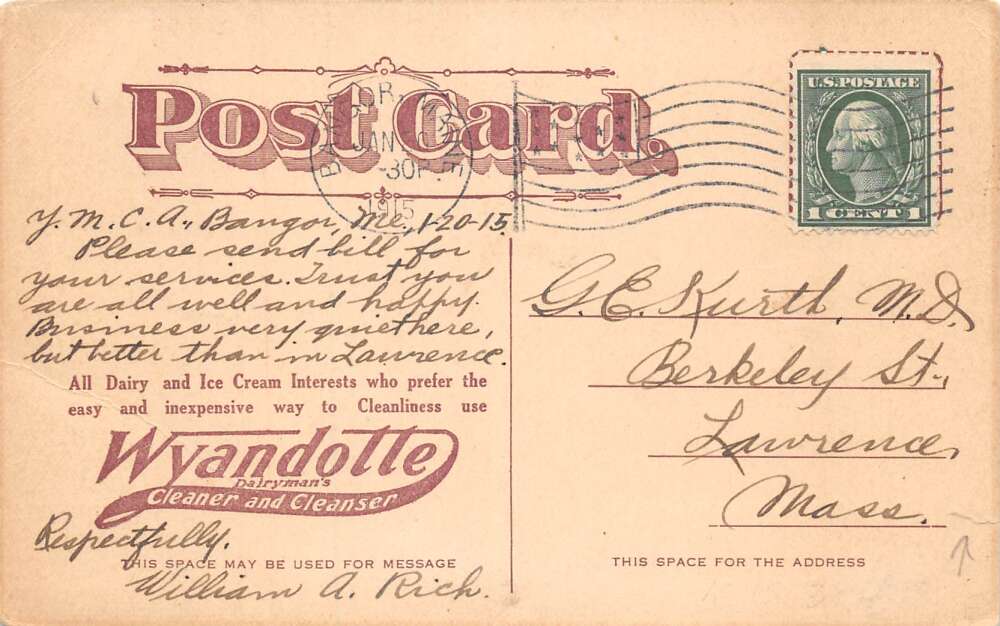 Post Card.
BANGOR, MAINE
JAN
-30P
1915
U.S. POSTAGE
1 CENT 1
Y. M. C. A., Bangor, Me., 1-20-15.
Please send bill for
your services. Trust you
are all well and happy.
Business very quiet here,
but better than in Lawrence.
All Dairy and Ice Cream Interests who prefer the
easy and inexpensive way to Cleanliness use
Wyandotte
Dairyman's
Cleaner and Cleanser
Respectfully.
THIS SPACE MAY BE USED FOR MESSAGE
William A. Rich.
G. E. Kurth, M.D.,
Berkeley St.,
Lawrence,
Mass.
THIS SPACE FOR THE ADDRESS